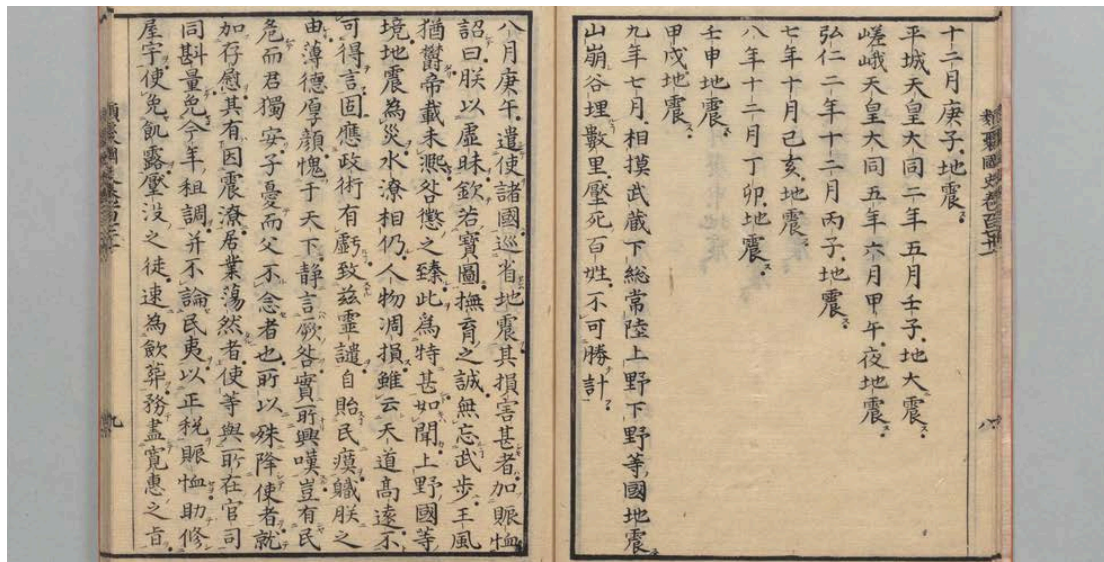 十二月庚子地震
平城天皇大同二年五月壬子地大震
嵯峨天皇大同五年六月甲午夜地震
弘仁二年十二月丙子地震
七年十月己亥地震
八年十二月丁卯地震
壬申地震
甲戌地震
九年七月相摸武蔵下総常陸上野下野等國地震
山崩谷埋數里壓死百姓不可勝計
八
八月庚午遣使諸國巡省地震其損害甚者加賑恤
詔曰朕以虛昧欽若寶圖撫育之誠無忘武步王風
猶欝帝載未凞咎懲之臻此為特甚如聞上野國等
境地震為災水潦相仍人物凋損雖云天道高遠不
可得言固應政術有虧致茲靈譴自貽民瘼職朕之
由薄德厚顏愧于天下靜言厥咎實所興嘆豈有民
危而君獨安子憂而父不念者也所以殊降使者就
加存慰其有因震潦居業蕩然者使等與所在官司
同斟量免今年租調并不論民夷以正税賑恤助修
屋宇使免飢露壓没之徒速為飲葬務盡寬惠之旨
九